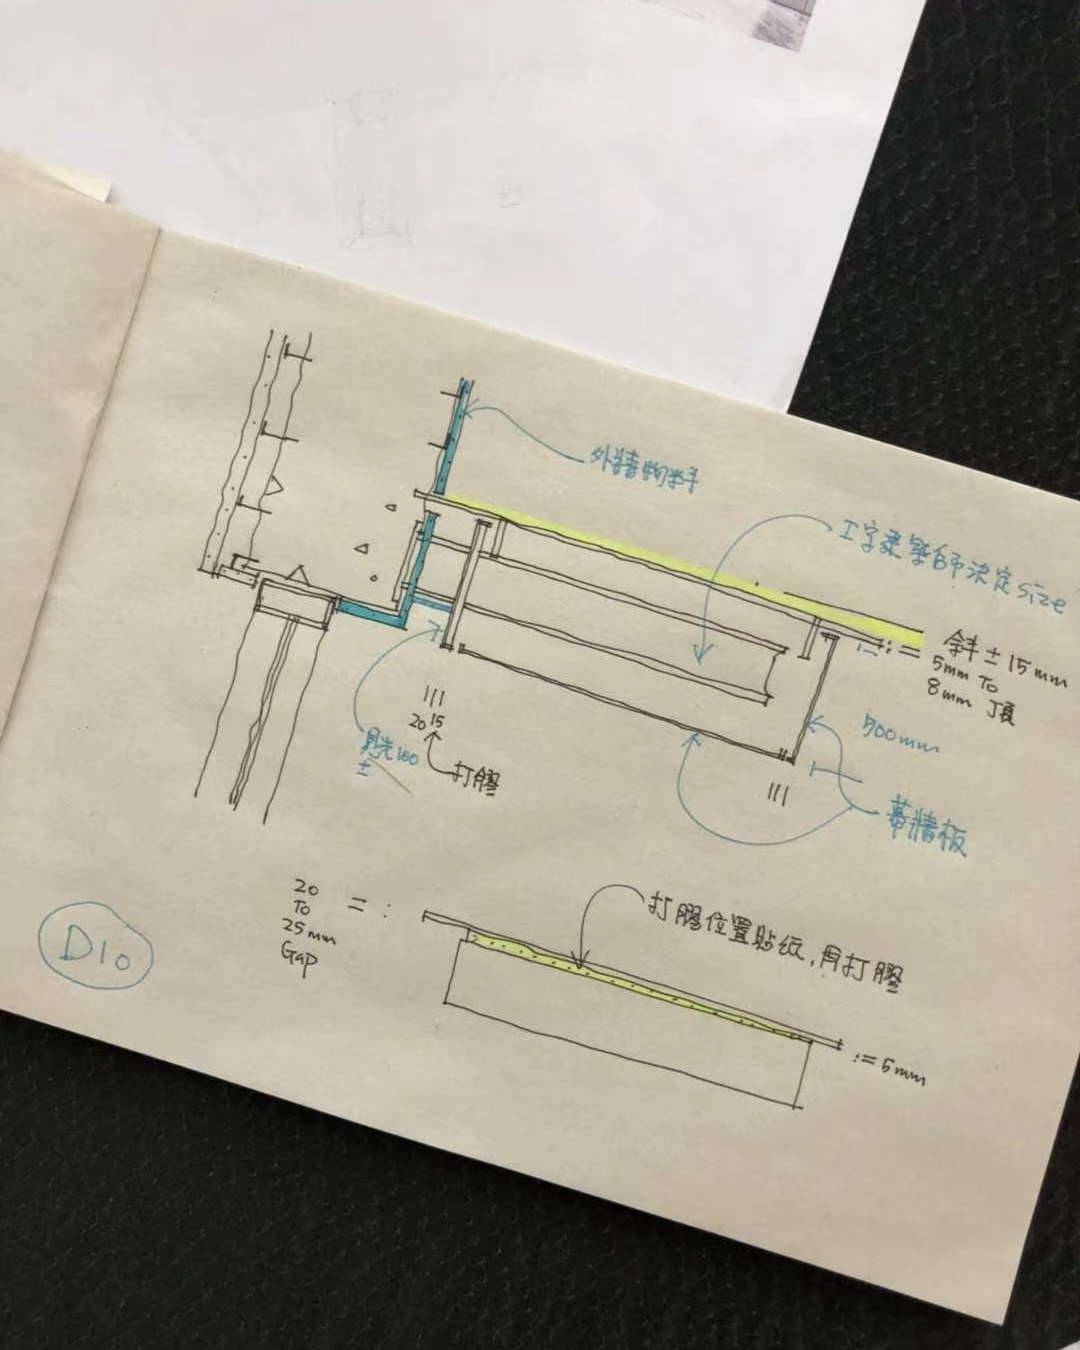 外牆物料
工字梁 師決定 size
斜 ± 15mm
5mm To
8mm 頂
500mm
20 15
打膠
100
±
幕牆板
20
To
25mm
Gap
打膠位置貼紙,再打膠
5mm
D10